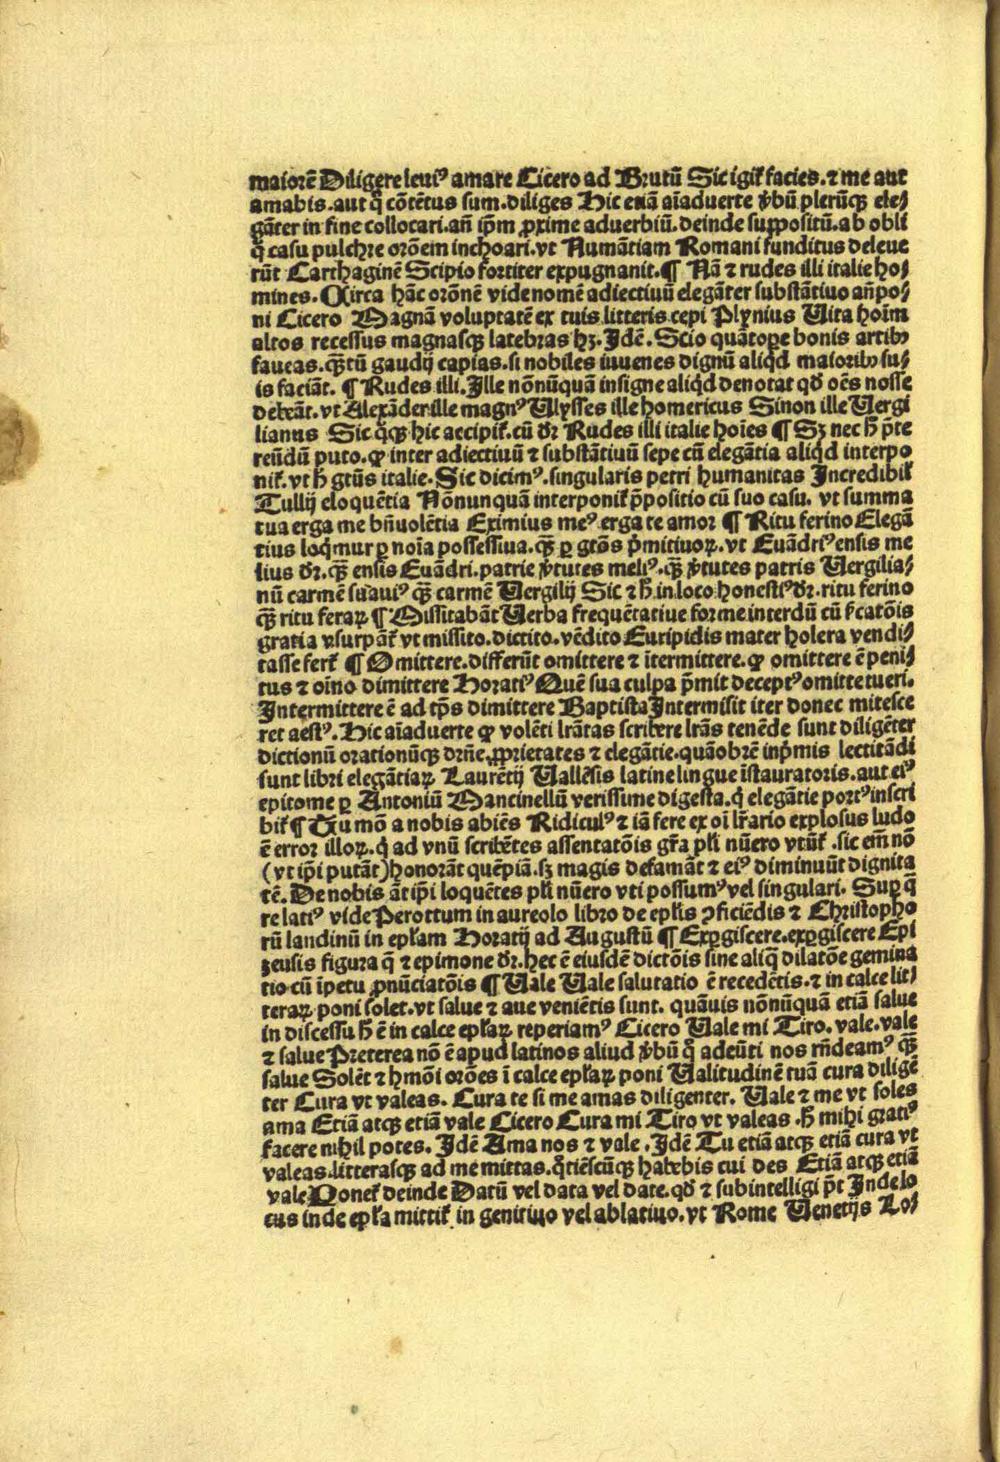 maiorē Diligere leuiꝰ amare Cicero ad Brutū Sic igit̃ facies.⁊ me aut
amabis.aut q̄ cōtētus sum.diliges Hic etiā aīaduerte v̓bū plerūqꝫ ele⸗
gāter in fine collocari.añ ip̄m ꝓxime aduerbiū.deinde suppositū.ab obli
q̄ casu pulchre orōem inchoari.vt Numātiam Romani funditus deleue
rūt Carthaginē Scipio fortiter expugnauit.¶ Nā ⁊ rudes illi italie ho⸗
mines. Circa hāc orōnē vide nomē adiectiuū elegāter substātiuo añpo⸗
ni Cicero Magnā voluptatē ex tuis litteris cepi Plynius Uita hoīm
altos recessus magnasqꝫ latebras hꝫ.Idē.Scio quātope bonis artibꝰ
faueas.qꝫtū gaudij capias.si nobiles iuuenes dignū aliqd maioribꝰ su⸗
is faciāt. ¶ Rudes illi.Ille nōnūquā insigne aliqd denotat qd̄ oēs nosse
debeāt.vt Alexāder ille magnꝰ Ulysses ille homericus Sinon ille Uergi
lianus Sic q̄qꝫ hic accipit̃.cū dr̄ Rudes illi italie hoīes ¶ Sꝫ nec h̄ p̄te
reūdū puto.ꝙ inter adiectiuū ⁊ substātiuū sepe cū elegātia aliqd interpo
nit̃.vt h̄ gtūs italie.Sic dicimꝰ.singularis petri humanitas Incredibil̄
Tullij eloquētia Nōnunquā interponit̃ p̄positio cū suo casu. vt summa
tua erga me bn̄uolētia Eximius meꝰ erga te amor ¶ Ritu ferino Elegā
tius loq̄mur ꝑ noīa possessiua.qꝫ ꝑ gtōs p̄mitiuoꝝ.vt Euādriꝰ ensis me
lius dr̄.qꝫ ensis Euādri.patrie v̓tutes meliꝰ.qꝫ v̓tutes patris Uergilia⸗
nū carmē suauiꝰ qꝫ carmē Uergilij Sic ⁊ h̄.in loco honestiꝰ dr̄.ritu ferino
qꝫ ritu feraꝝ ¶ Missitabāt Uerba frequētatiue forme interdū cū ẜcatōis
gratia vsurpāt̃ vt missito.dictito.vēdito Euripidis mater holera vendi⸗
tasse fert̃ ¶ Omittere.differūt omittere ⁊ ītermittere.ꝙ omittere ē peni⸗
tus ⁊ oīno dimittere Horatiꝰ Quē sua culpa p̄mit deceptꝰ omitte tueri.
Intermittere ē ad tp̄s dimittere Baptista Intermisit iter donec mitesce
ret aestꝰ.Hic aīaduerte ꝙ volēti lr̄atas scribere lr̄as tenēde sunt diligēter
dictionū orationūqꝫ dr̄ne,ꝓprietates ⁊ elegātie.quāobrē inp̄mis lectitādi
sunt libri elegātiaꝝ Laurētij Uallēsis latine lingue īstauratoris.aut eiꝰ
epitome ꝑ Antoniū Mancinellū verissime digesta.q̄ elegātie portꝰ inscri
bit̃ ¶ Tu mō a nobis abiēs Ridiculꝰ ⁊ iā fere ex oī lr̄ario explosus ludo
ē error illoꝝ.q̄ ad vnū scribētes assentatōis gr̄a pl̄i nūero vtūt̃ .sic em̄ nō
(vt ip̄i putāt)honorāt quēpiā.sꝫ magis defamāt ⁊ eiꝰ diminuūt dignita
tē.De nobis āt ip̄i loquētes pl̄i nūero vti possumꝰ vel singulari. Suꝑ q̄
re latiꝰ vide Perottum in aureolo libro de epl̄is ꝯficiēdis ⁊ Christopho
rū landinū in epl̄am Horatij ad Augustū ¶ Exꝑgiscere.exꝑgiscere Epi
zeusis figura q̄ ⁊ epimone dr̄.hec ē eiusdē dictōis sine aliq̄ dilatōe gemina
tio cū īpetu ꝓnūciatōis ¶ Uale Uale salutatio ē recedētis.⁊ in calce lit⸗
teraꝝ poni solet.vt salue ⁊ aue veniētis sunt. quāuis nōnūquā etiā salue
in discessu h̄ ē in calce epl̄aꝝ reperiamꝰ Cicero Uale mi Tiro.vale.vale
⁊ salue Preterea nō ē apud latinos aliud v̓bū q̄ adeūti nos rñdeamꝰ qꝫ
salue Solēt ⁊ hmōi orōes ī calce epl̄aꝝ poni Ualitudinē tuā cura diligē
ter Cura vt valeas. Cura te si me amas diligenter. Uale ⁊ me vt soles
ama Etiā atqꝫ etiā vale Cicero Cura mi Tiro vt valeas .h̄ mihi gratiꝰ
facere nihil potes. Idē Ama nos ⁊ vale .Idē Tu etiā atqꝫ etiā cura vt
valeas.litterasqꝫ ad me mittas.q̄tiēscūqꝫ habebis cui des Etiā atqꝫ etiā
vale Ponet̃ deinde Datū vel data vel date.qd̄ ⁊ subintelligi p̄t Inde lo
cus inde epl̄a mittit̃ in genitiuo vel ablatiuo.vt Rome Uenetijs Lo⸗